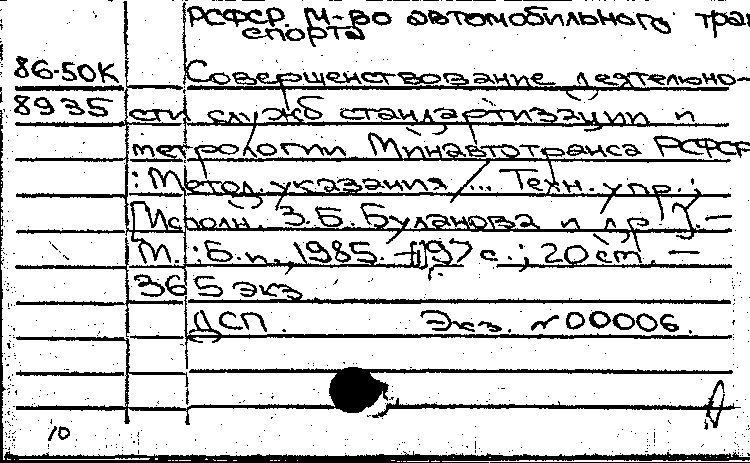 РСФСР. М-во автомобильного тран
спорта
86-50К Совершенствование деятельно-
8935 сти служб стандартизации и
метрологии Минавтотранса РСФСР
: Метод. указания / ... Техн. упр.;
[Исполн. З.Б. Буланова и др.]. —
М. : Б. и., 1985. — 197 с. ; 20 см. —
365 экз.
ДСП. Экз. №00006.
10